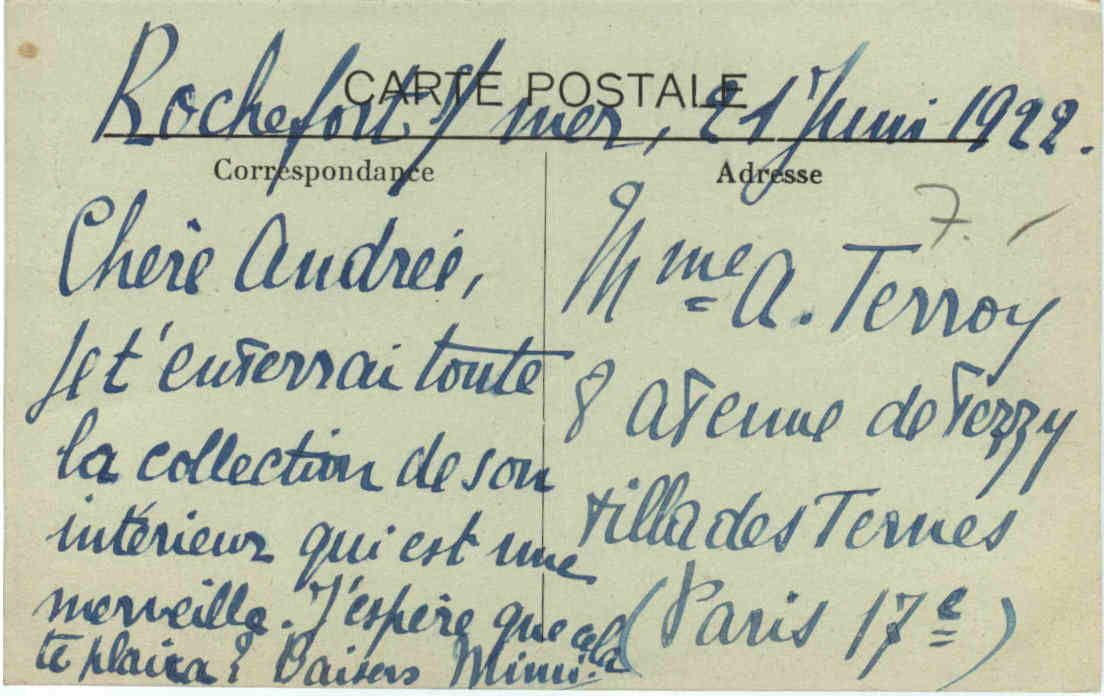 CARTE POSTALE
Rochefort s/ mer, 21 Juin 1922.
Correspondance
Chère Andrée,
Je t'enverrai toute
la collection de son
intérieur qui est une
merveille. J'espère que cela
te plaira ? Baisers Mimi.
Adresse
7.
Mme A. Terroy
8 Avenue de Verzy
Villa des Ternes
(Paris 17e)